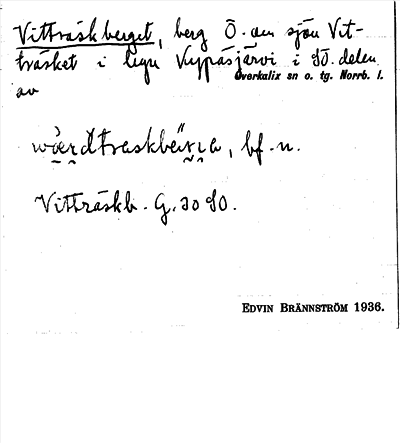 Vitträskberget, berg Ö. om sjön Vit-
träsket i byn Vuppasjärvi i SÖ. delen
Överkalix sn o. tg. Norrb. l.
av
bf. n.
Vitträskb. G. 20 SO.
EDVIN BRÄNNSTRÖM 1936.